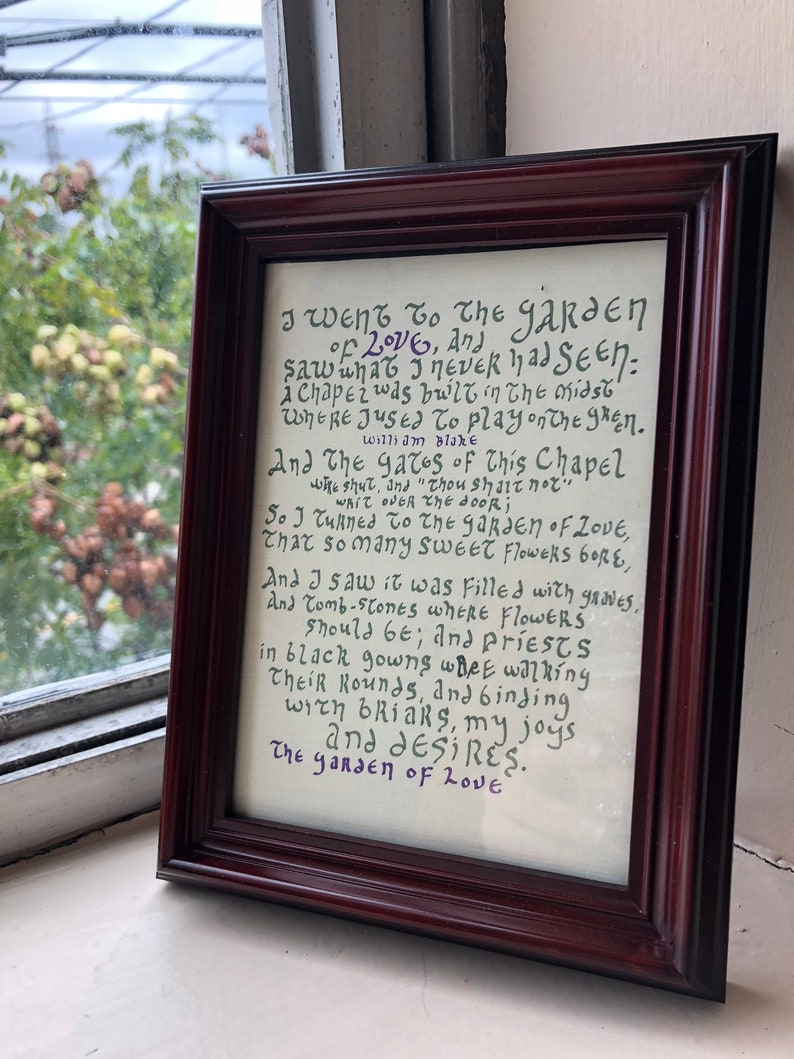 I went to the garden
of Love, and
saw what I never had seen:
A Chapel was built in the midst
where I used to play on the green.
William Blake
And the gates of this Chapel
were shut, and "thou shalt not"
writ over the door;
So I turned to the garden of Love,
that so many sweet flowers bore,
And I saw it was filled with graves,
And tomb-stones where flowers
should be; and priests
in black gowns were walking
their rounds, and binding
with briars, my joys
and desires.
The garden of Love